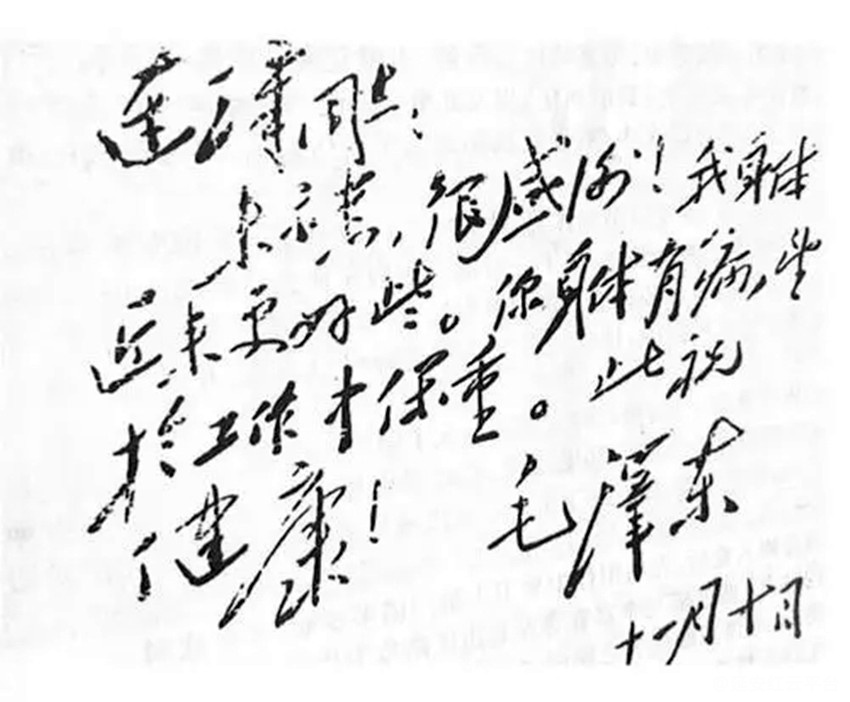 同志：
来示悉，很感谢！我身体
近来更好些。你身体有病，望
於工作中保重。此祝
健康！
毛泽东
十一月十日